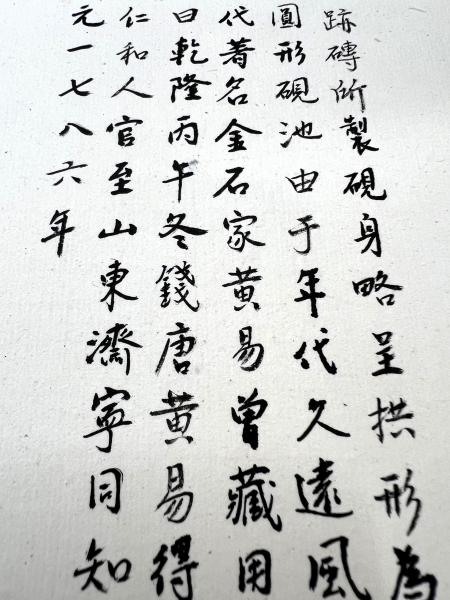 跡磚所製硯身略呈拱形為
圓形硯池由于年代久遠風
代著名金石家黃易曾藏用
曰乾隆丙午冬錢唐黃易得
仁和人官至山東濟寧同知
元一七八六年